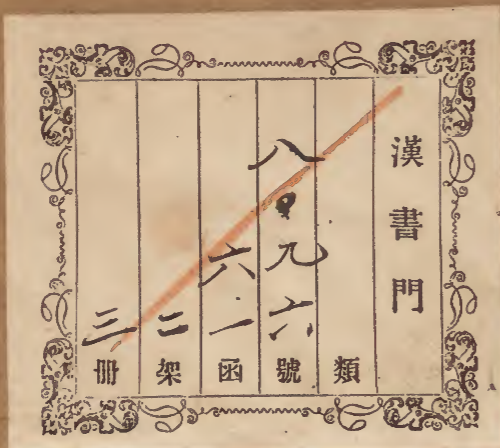 漢書門
類
八〇九六號
六一函
二架
三冊